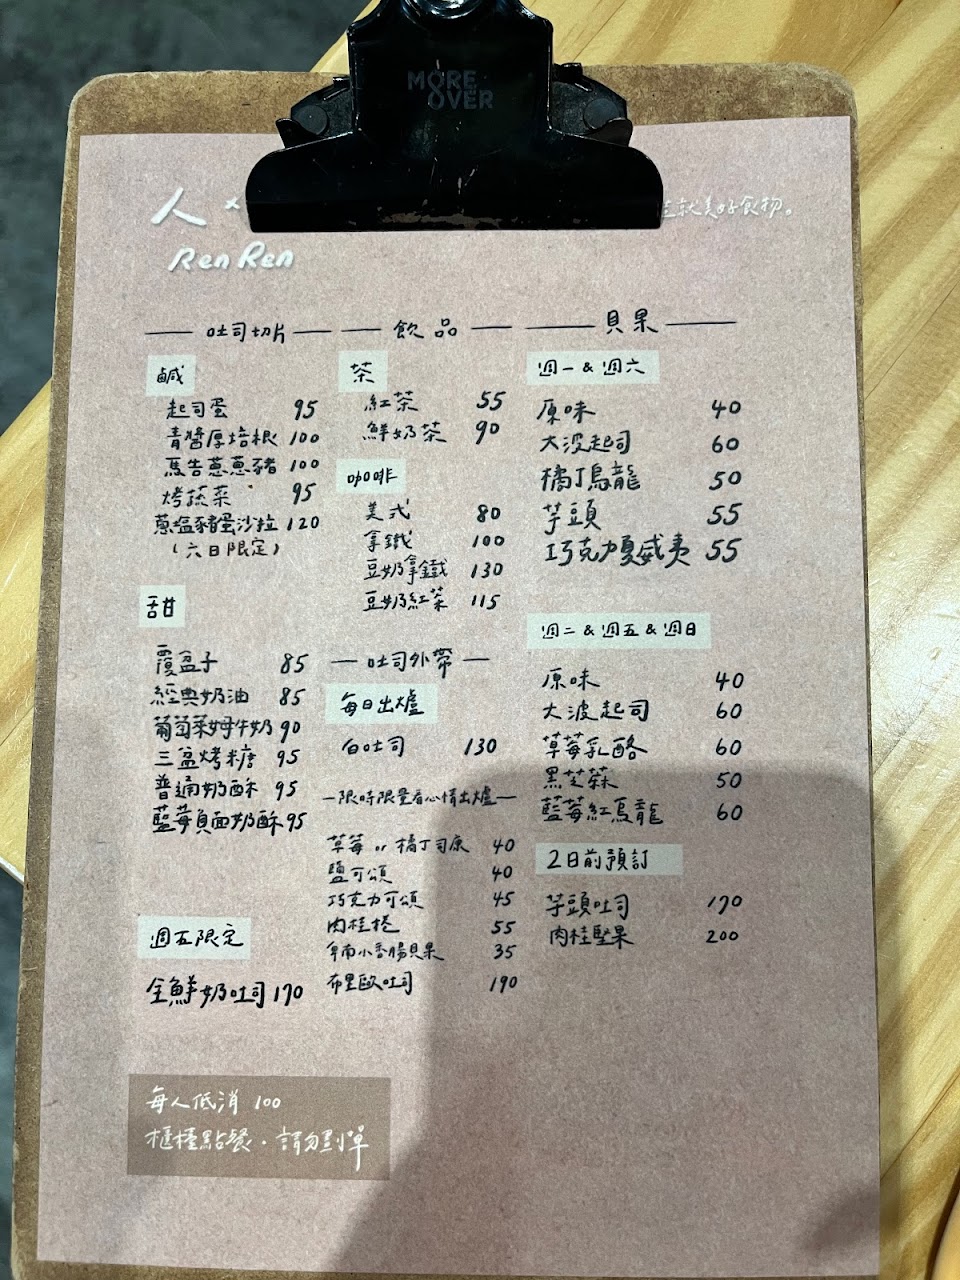 MORE
OVER
人
就美好食物。
Ren Ren
吐司切片
鹹
起司蛋 95
青醬厚培根 100
馬告蔥蔥豬 100
烤蔬菜 95
蔥鹽豬蛋沙拉 120
(六日限定)
甜
覆盆子 85
經典奶油 85
葡萄萊姆牛奶 90
三盆烤糖 95
普通奶酥 95
藍莓負面奶酥 95
週五限定
全鮮奶吐司 170
飲品
茶
紅茶 55
鮮奶茶 90
咖啡
美式 80
拿鐵 100
豆奶拿鐵 130
豆奶紅茶 115
吐司外帶
每日出爐
白吐司 130
限時限量看心情出爐
草莓 or 橘丁司康 40
鹽可頌 40
巧克力可頌 45
肉桂捲 55
卑南小香腸貝果 35
布里歐吐司 190
貝果
週一 & 週六
原味 40
大波起司 60
橘丁烏龍 50
芋頭 55
巧克力夏威夷 55
週二 & 週五 & 週日
原味 40
大波起司 60
草莓乳酪 60
黑芝蔴 50
藍莓紅烏龍 60
2日前預訂
芋頭吐司 170
肉桂堅果 200
每人低消 100
櫃檯點餐．請勿劃單